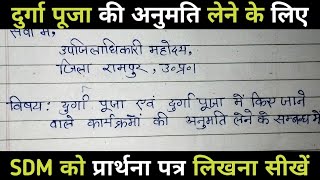 दुर्गा पूजा की अनुमति लेने के लिए
सेवा में,
उपजिलाधिकारी महोदय,
जिला रामपुर, उ०प्र०।
विषय: दुर्गा पूजा एवं दुर्गा पूजा में किए जाने
वाले कार्यक्रमों की अनुमति लेने के सम्बन्ध में
SDM को प्रार्थना पत्र लिखना सीखें